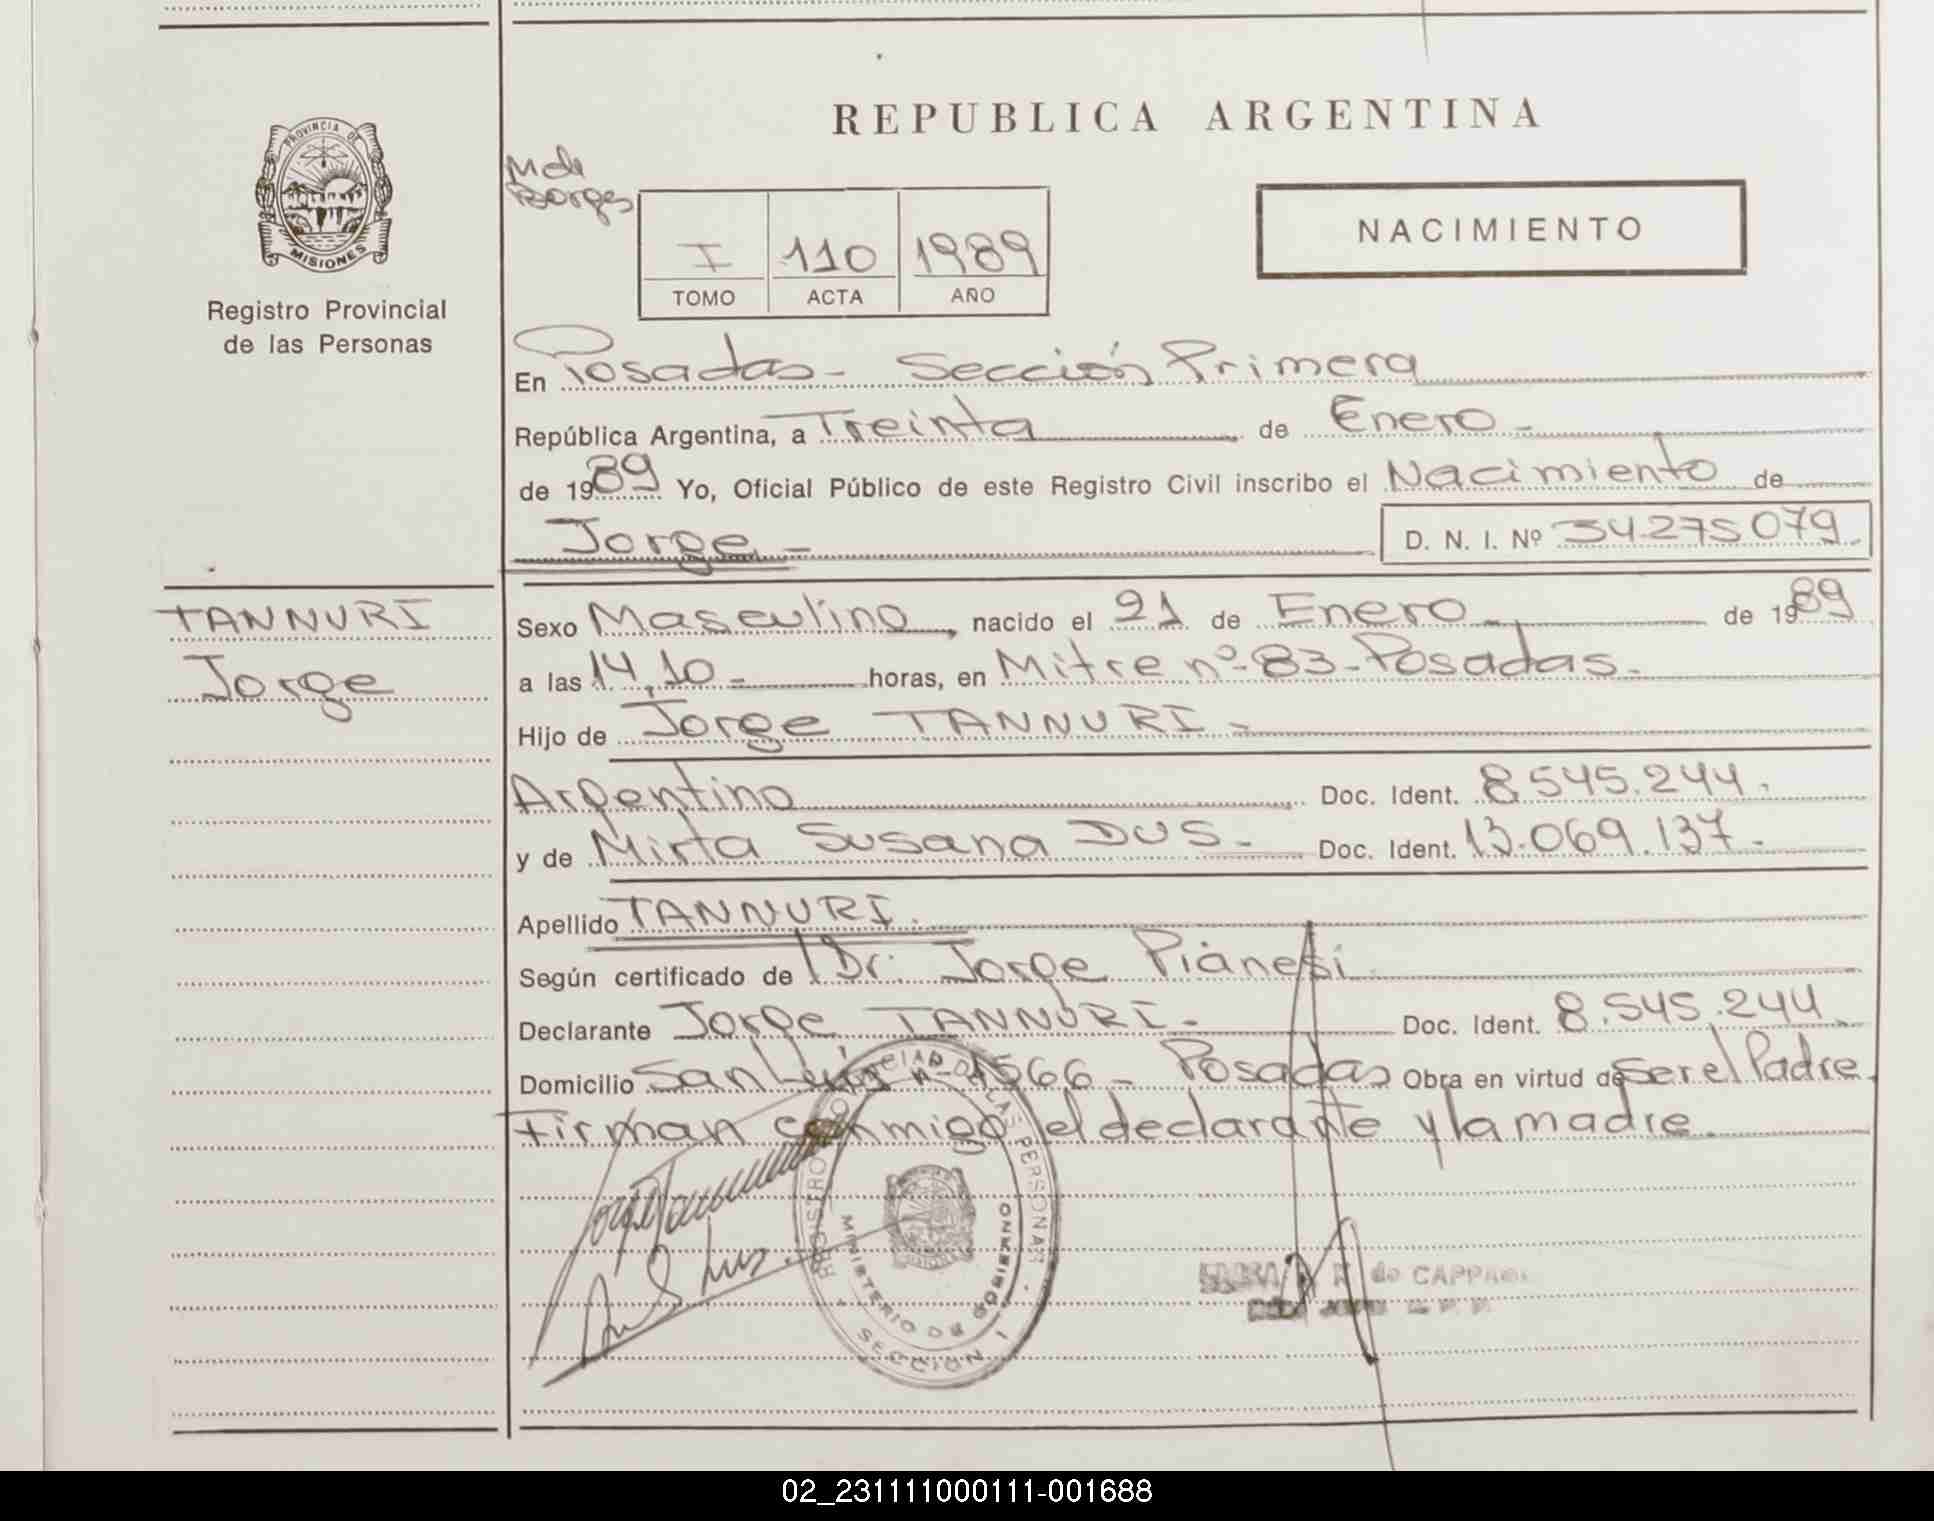 REPUBLICA ARGENTINA
PROVINCIA DE
MISIONES
Registro Provincial
de las Personas
M de
Borges
I 110 1989
TOMO ACTA AÑO
NACIMIENTO
En Posadas - Sección Primera
República Argentina, a Treinta de Enero -
de 1989 Yo, Oficial Público de este Registro Civil inscribo el Nacimiento de
Jorge - D. N. I. Nº 34275079
TANNURI
Jorge
Sexo Masculino, nacido el 21 de Enero - de 1989
a las 14,10 - horas, en Mitre nº 83 - Posadas.
Hijo de Jorge TANNURI -
Argentino Doc. Ident. 8.545.244.
y de Mirta Susana DUS - Doc. Ident. 13.069.137 -
Apellido TANNURI.
Según certificado de Dr. Jorge Pianesi
Declarante Jorge TANNURI - Doc. Ident. 8.545.244
Domicilio San Luis nº 1566 - Posadas Obra en virtud de ser el Padre.
Firman conmigo el declarante y la madre.
REGISTRO PROVINCIAL DE LAS PERSONAS
MINISTERIO DE GOBIERNO
SECCION 1
de CAPPA
02_231111000111-001688